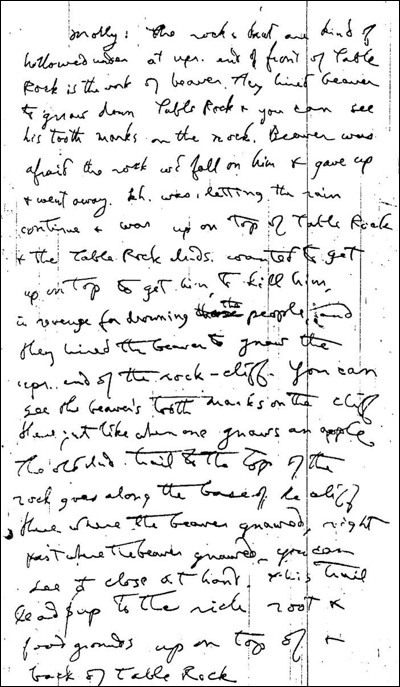 Molly: The rocks that are kind of
hollowed under at upr. end of front of Table
Rock is the work of beaver. They hired beaver
to gnaw down Table Rock & you can see
his tooth marks on the rock. Beaver was
afraid the rock wd fall on him & gave up
& went away. was letting the rain
continue & was up on top of Table Rock
& the Table Rock Inds. wanted to get
up on top to get him to kill him,
in revenge for drowning the people, and
they hired the beaver to gnaw the
upr. end of the rock-cliff. You can
see the beaver's tooth marks on the cliff
there just like when one gnaws an apple
The old Ind. trail to the top of the
rock goes along the base of the cliff
there where the beaver gnawed, right
past where the beaver gnawed - you can
see it close at hand. & this trail
leads up to the rich root &
food grounds up on top of &
back of Table Rock